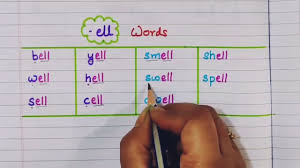 -ell Words
bell yell smell shell
well hell swell spell
sell cell